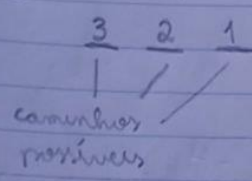 3 2 1
caminhos
possíveis